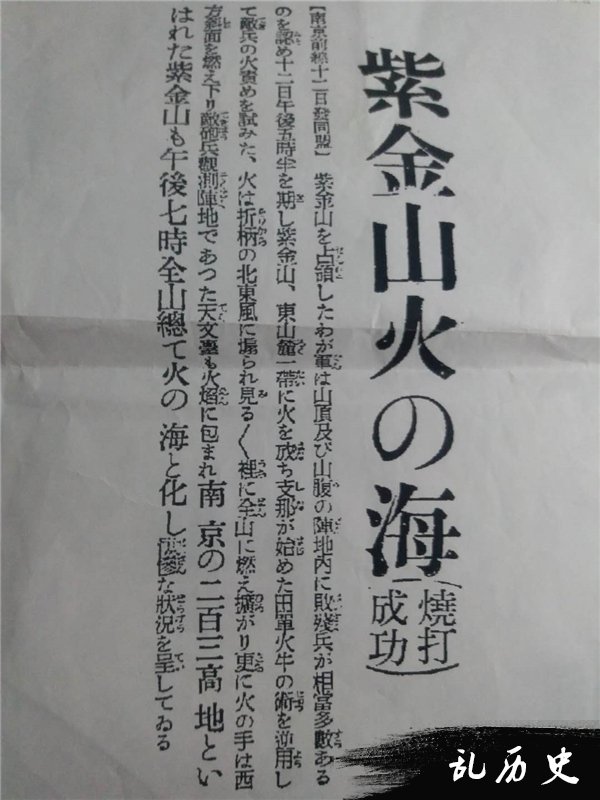 紫金山火の海
（燒打成功）
【南京前線十二日發同盟】紫金山を占領したわが軍は山頂及び山腹の陣地内に敗殘兵が相當多數ある
のを認め十二日午後五時半を期し紫金山、東山麓一帶に火を放ち支那が始めた田單火牛の術を逆用し
て敵兵の火責めを試みた、火は折柄の北東風に煽られ見る〱裡に全山に燃え擴がり更に火の手は西
方斜面を燃え下り敵砲兵觀測陣地であつた天文臺も火焰に包まれ南京の二百三高地とい
はれた紫金山も午後七時全山總て火の海と化し悽慘な狀況を呈してゐる
乱历史